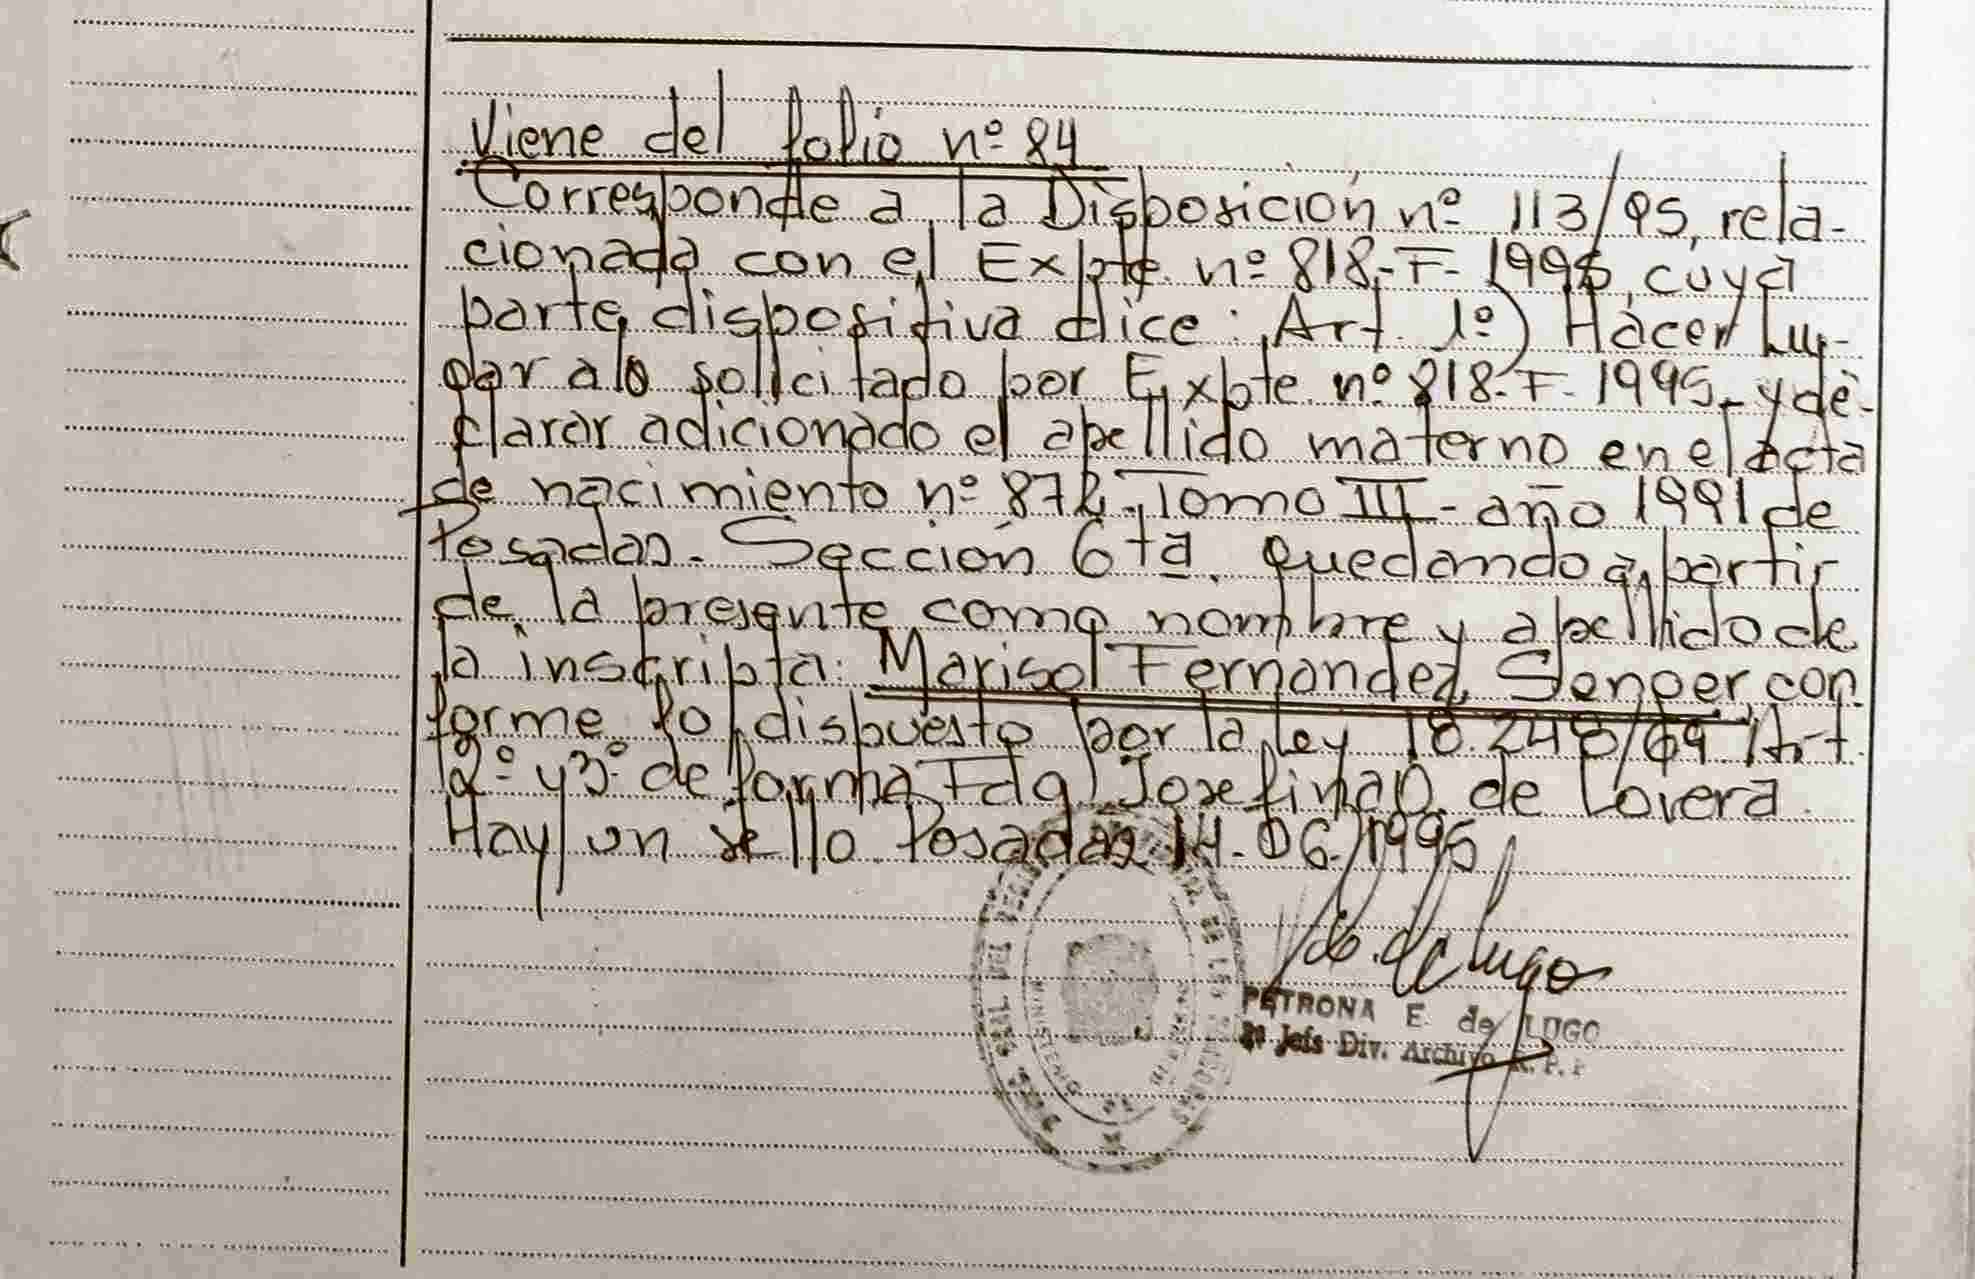 Viene del folio nº 84
Corresponde a la Disposición nº 113/95, rela-
cionada con el Expte. nº 818-F-1995, cuya
parte dispositiva dice: Art. 1º) Hacer Lu-
gar a lo solicitado por Expte nº 818-F-1995- y de-
clarar adicionado el apellido materno en el acta
de nacimiento nº 872- Tomo III - año 1991 de
Posadas- Sección 6ta. quedando a partir
de la presente como nombre y apellido de
la inscripta: Marisol Fernandez, con
forme lo dispuesto por la ley 18.248/69 Art.
2º y 3º de forma Fdo Josefina de Lovera.
Hay un sello Posadas 14-06-1995
PETRONA E. de LUGO
Jefe Div. Archivo R. P. P
MINISTERIO